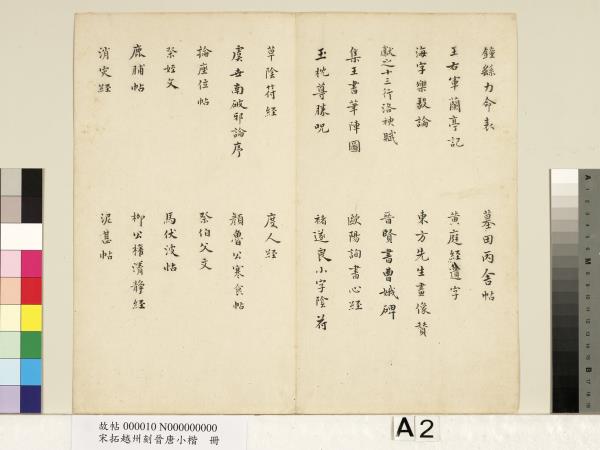 鍾繇力命表
墓田丙舍帖
王右軍蘭亭記
黃庭經 遺字
海字樂毅論
東方先生畫像贊
獻之十三行洛神賦
晉賢書曹娥碑
集王書筆陣圖
歐陽詢書心經
玉枕尊勝呪
褚遂良小字陰符
草陰符經
度人經
虞世南破邪論序
顏魯公寒食帖
論座位帖
祭伯父文
祭姪文
馬伏波帖
鹿脯帖
柳公權清靜經
消災經
泥甚帖
故帖 000010 N000000000
宋拓越州刻晉唐小楷 冊
A2
M
B